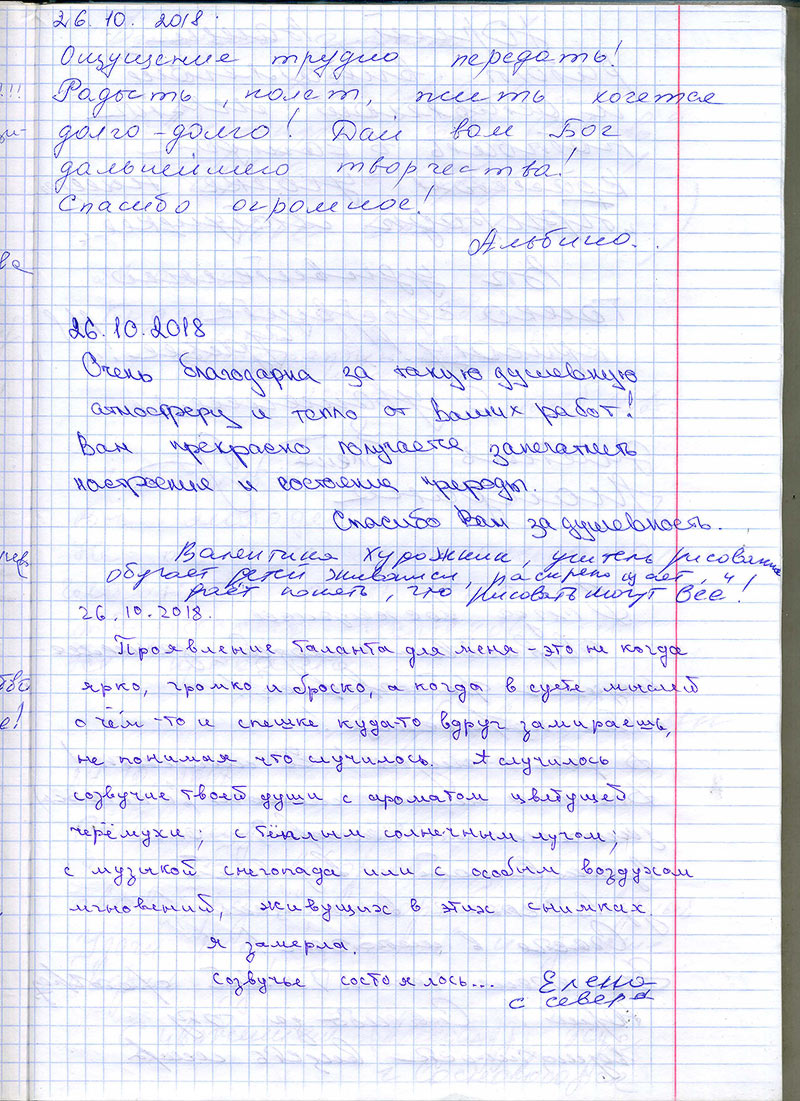 26.10.2018.
Ощущение трудно передать!
Радость, полет, жить хочется
долго-долго! Дай вам Бог
дальнейшего творчества!
Спасибо огромное!
Альбина.
26.10.2018
Очень благодарна за такую душевную
атмосферу и тепло от Ваших работ!
Вам прекрасно получается запечатлеть
настроение и состояние природы.
Спасибо Вам за душевность.
Валентина художник, учитель рисования
обучает детей живописи, раскрепощает, и
даёт понять, что рисовать могут все!
26.10.2018.
Проявление таланта для меня - это не когда
ярко, громко и броско, а когда в суете мыслей
о чём-то и спешке куда-то вдруг замираешь,
не понимая что случилось. А случилось
созвучие твоей души с ароматом цветущей
черёмухи; с тёплым солнечным лучом;
с музыкой снегопада или с особым воздухом
мгновений, живущих в этих снимках.
Я замерла.
Созвучье состоялось... Елена
с севера